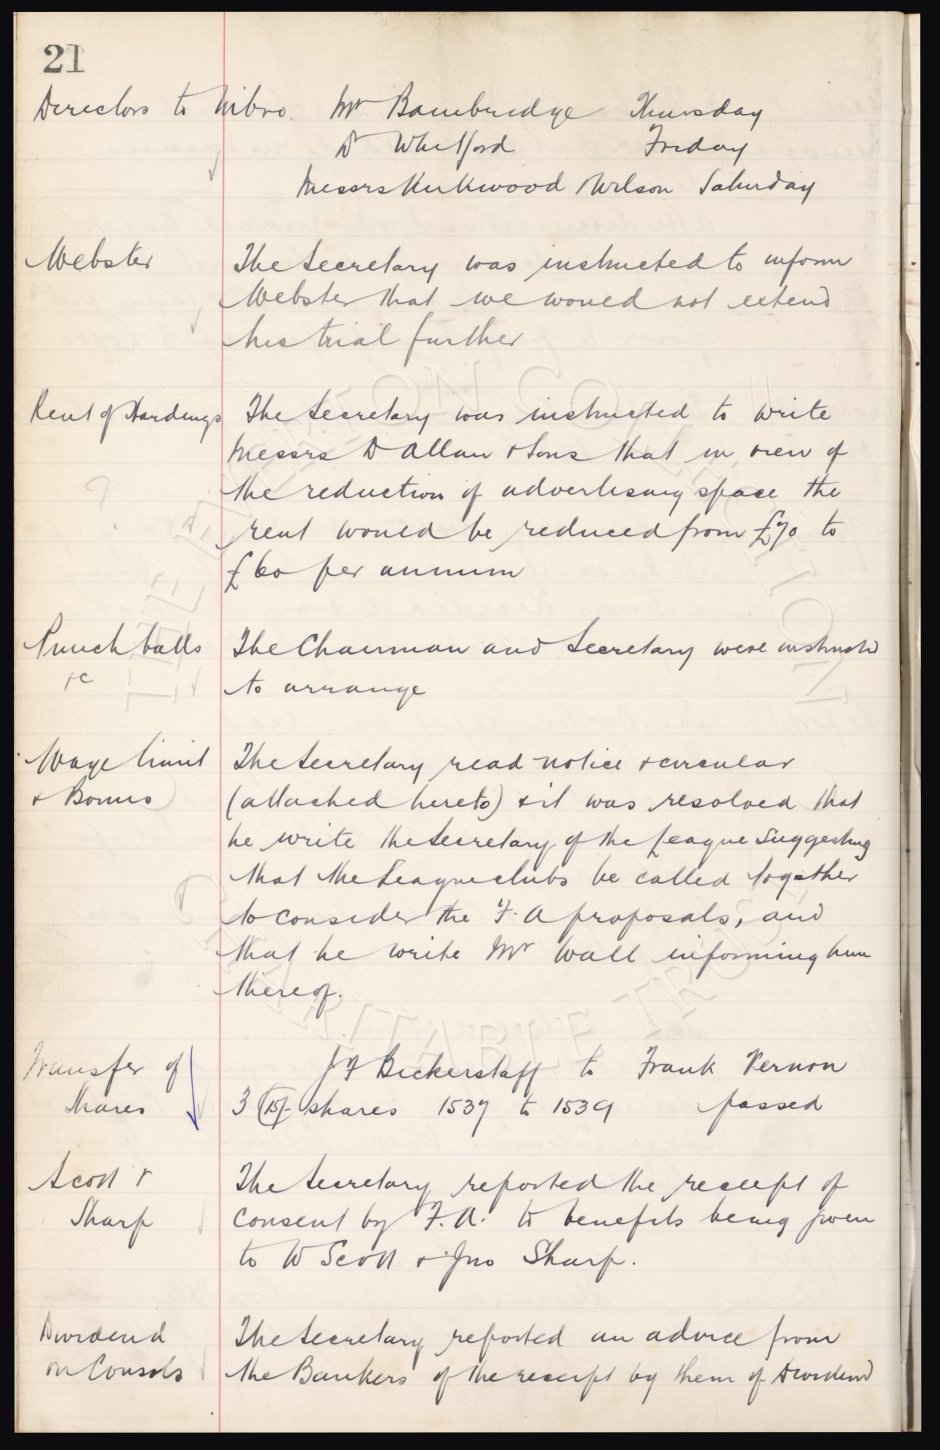 21
Directors to Nibro. Mr Bainbridge Thursday
Dr Whitford Friday
Messrs Kirkwood & Wilson Saturday
Webster The Secretary was instructed to inform
Webster that we would not extend
his trial further
Rent of Hoardings The Secretary was instructed to write
Messrs D Allan & Sons that in view of
the reduction of advertising space the
rent would be reduced from £70 to
£60 per annum
Punch balls The Chairman and Secretary were instructed
&c to arrange
Wage limit The Secretary read notice & circular
& Bonus (attached hereto) & it was resolved that
he write the Secretary of the League suggesting
that the League clubs be called together
to consider the F.A proposals, and
that he write Mr Wall informing him
thereof.
Transfer of J F Bickerstaff to Frank Vernon
Shares 3 (15/- shares 1537 to 1539 passed
Scott & The Secretary reported the receipt of
Sharp consent by F.A. to benefits being given
to W Scott & Jno Sharp.
Dividend The Secretary reported an advice from
on Consols the Bankers of the receipt by them of Dividend
THE EVERTON COLLECTION
CHARITABLE TRUST